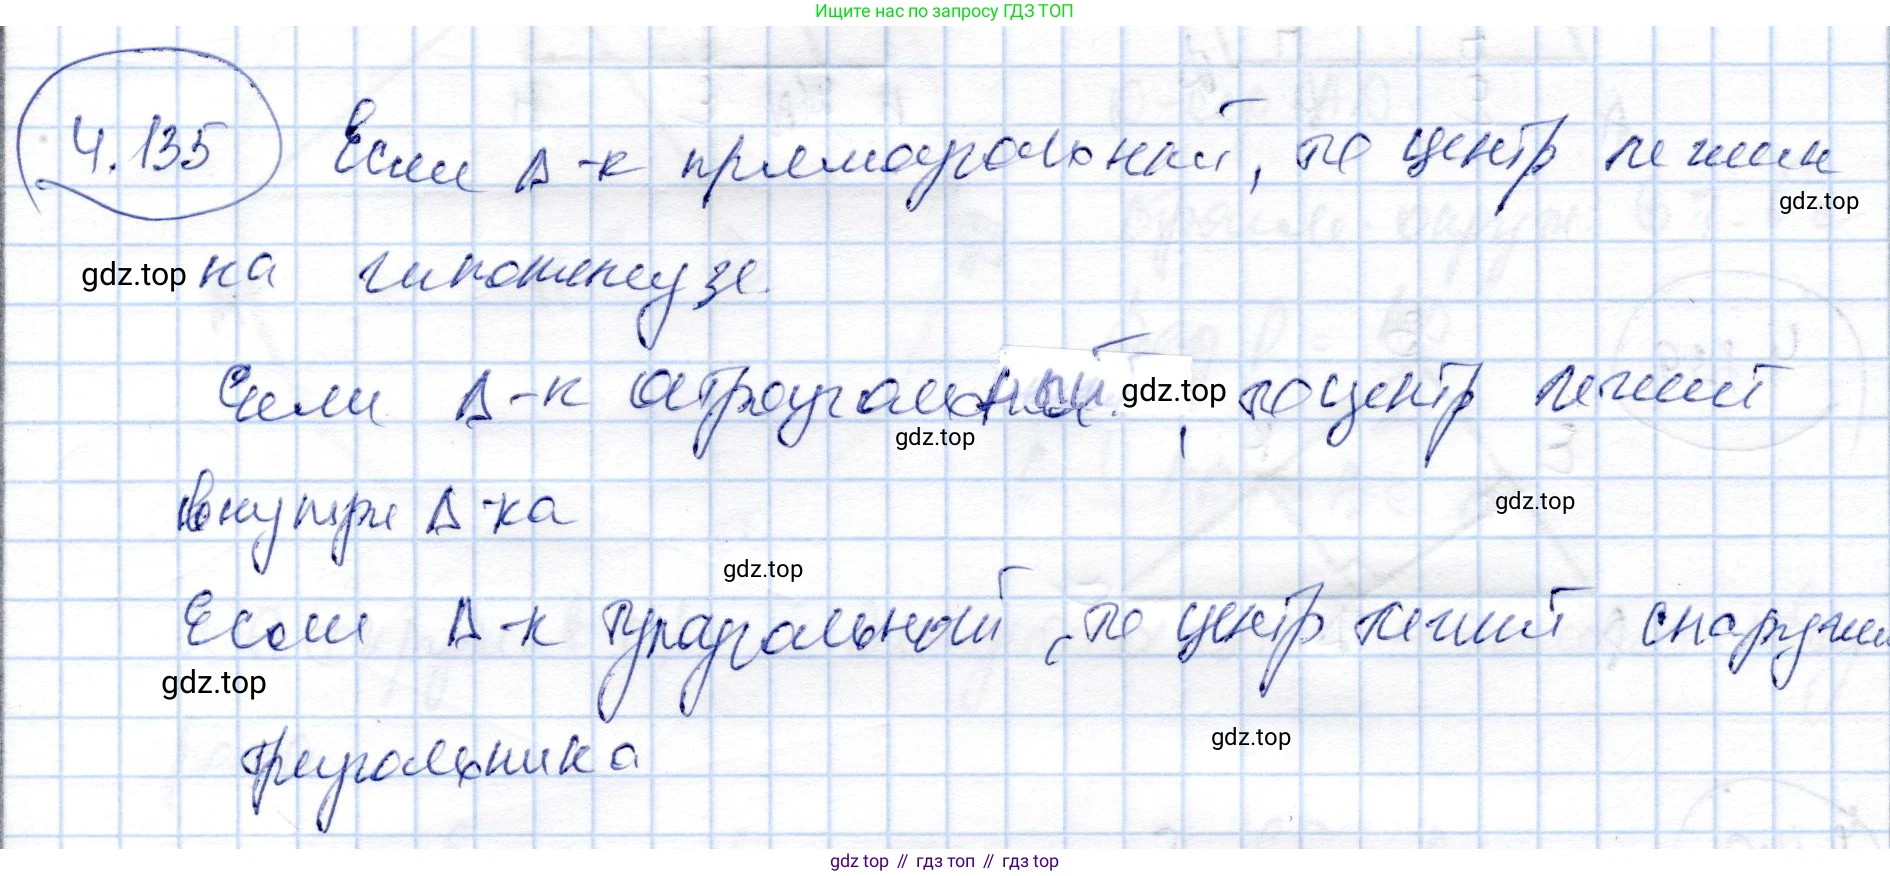 Ищите нас по запросу ГДЗ ТОП
4.135 Если Δ-к прямоугольный, то центр лежит
gdz.top
gdz.top на гипотенузе.
Если Δ-к остроугольный gdz.top, то центр лежит
gdz.top
внутри Δ-ка
gdz.top
gdz.top
Если Δ-к тупоугольный, то центр лежит снаружи
gdz.top
треугольника
gdz.top
gdz top // гдз топ // гдз top